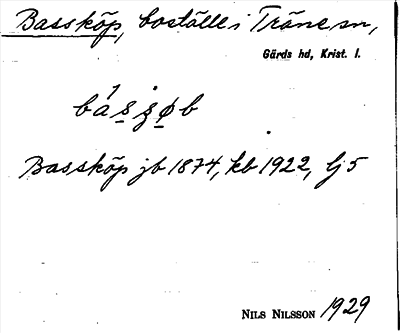 Bassköp, boställe i Träne sn,
Gärds hd, Krist. l.
básʂøb
Bassköp jb 1874, kb 1922, lj 5
NILS NILSSON 1929